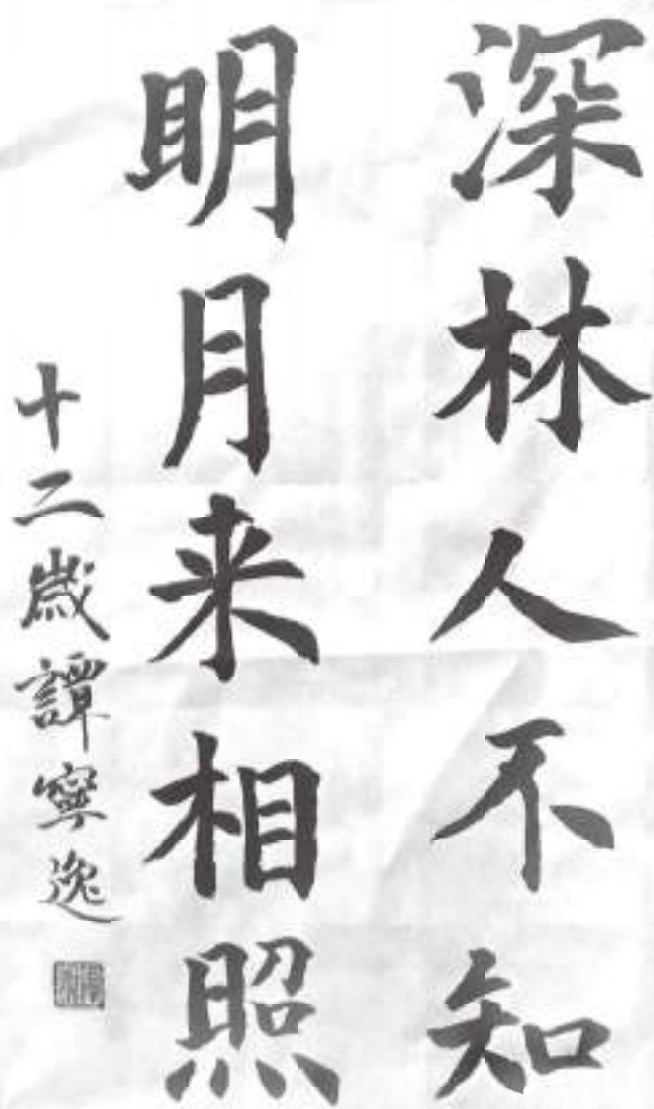 深林人不知
明月来相照
十二歲譚寧逸